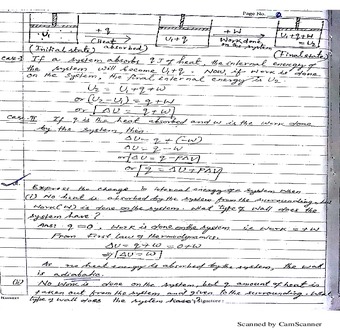 Page No.
U₁ + q U₁+q + W U₁+q+W = U₂
(Heat absorbed) Work done on the system
(Initial state) (Final state)
Case-I If a system absorbs q J of heat, the internal energy of
the system will become U₁+q. Now if work is done
on the system, the final internal energy is U₂
U₂ = U₁+q+W
or (U₂-U₁) = q+W
or ΔU = q+W
Case-II If q is the heat absorbed and w is the work done
by the system, then
ΔU = q + (-W)
ΔU = q - W
or ΔU = q - PΔV
or q = ΔU + PΔV
Express the change in internal energy of a system when
(i) No heat is absorbed by the system from the surrounding, but
work (W) is done on the system. What type of wall does the
system have?
Ans: q = 0, Work is done on the system i.e. work = +W
From first law of thermodynamics.
ΔU = q+W = 0+W
⇒ ΔU = W
As no heat energy is absorbed by the system, the wall
is adiabatic.
(ii) No work is done on the system, but q amount of heat is
taken out from the system and given to the surrounding. What
type of wall does the system have? Signature:
Scanned by CamScanner